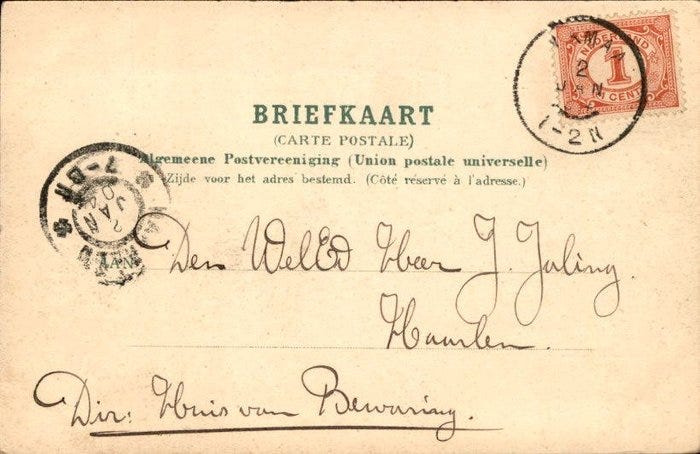 NEDERLAND
1
CENT
2
JAN
1-2N
BRIEFKAART
(CARTE POSTALE)
Algemeene Postvereeniging (Union postale universelle)
Zijde voor het adres bestemd. (Côté réservé à l'adresse.)
2
JAN
04
AAN
Den WelEd Heer J. Jaling.
Haarlem.
Dir: Huis van Bewaring.